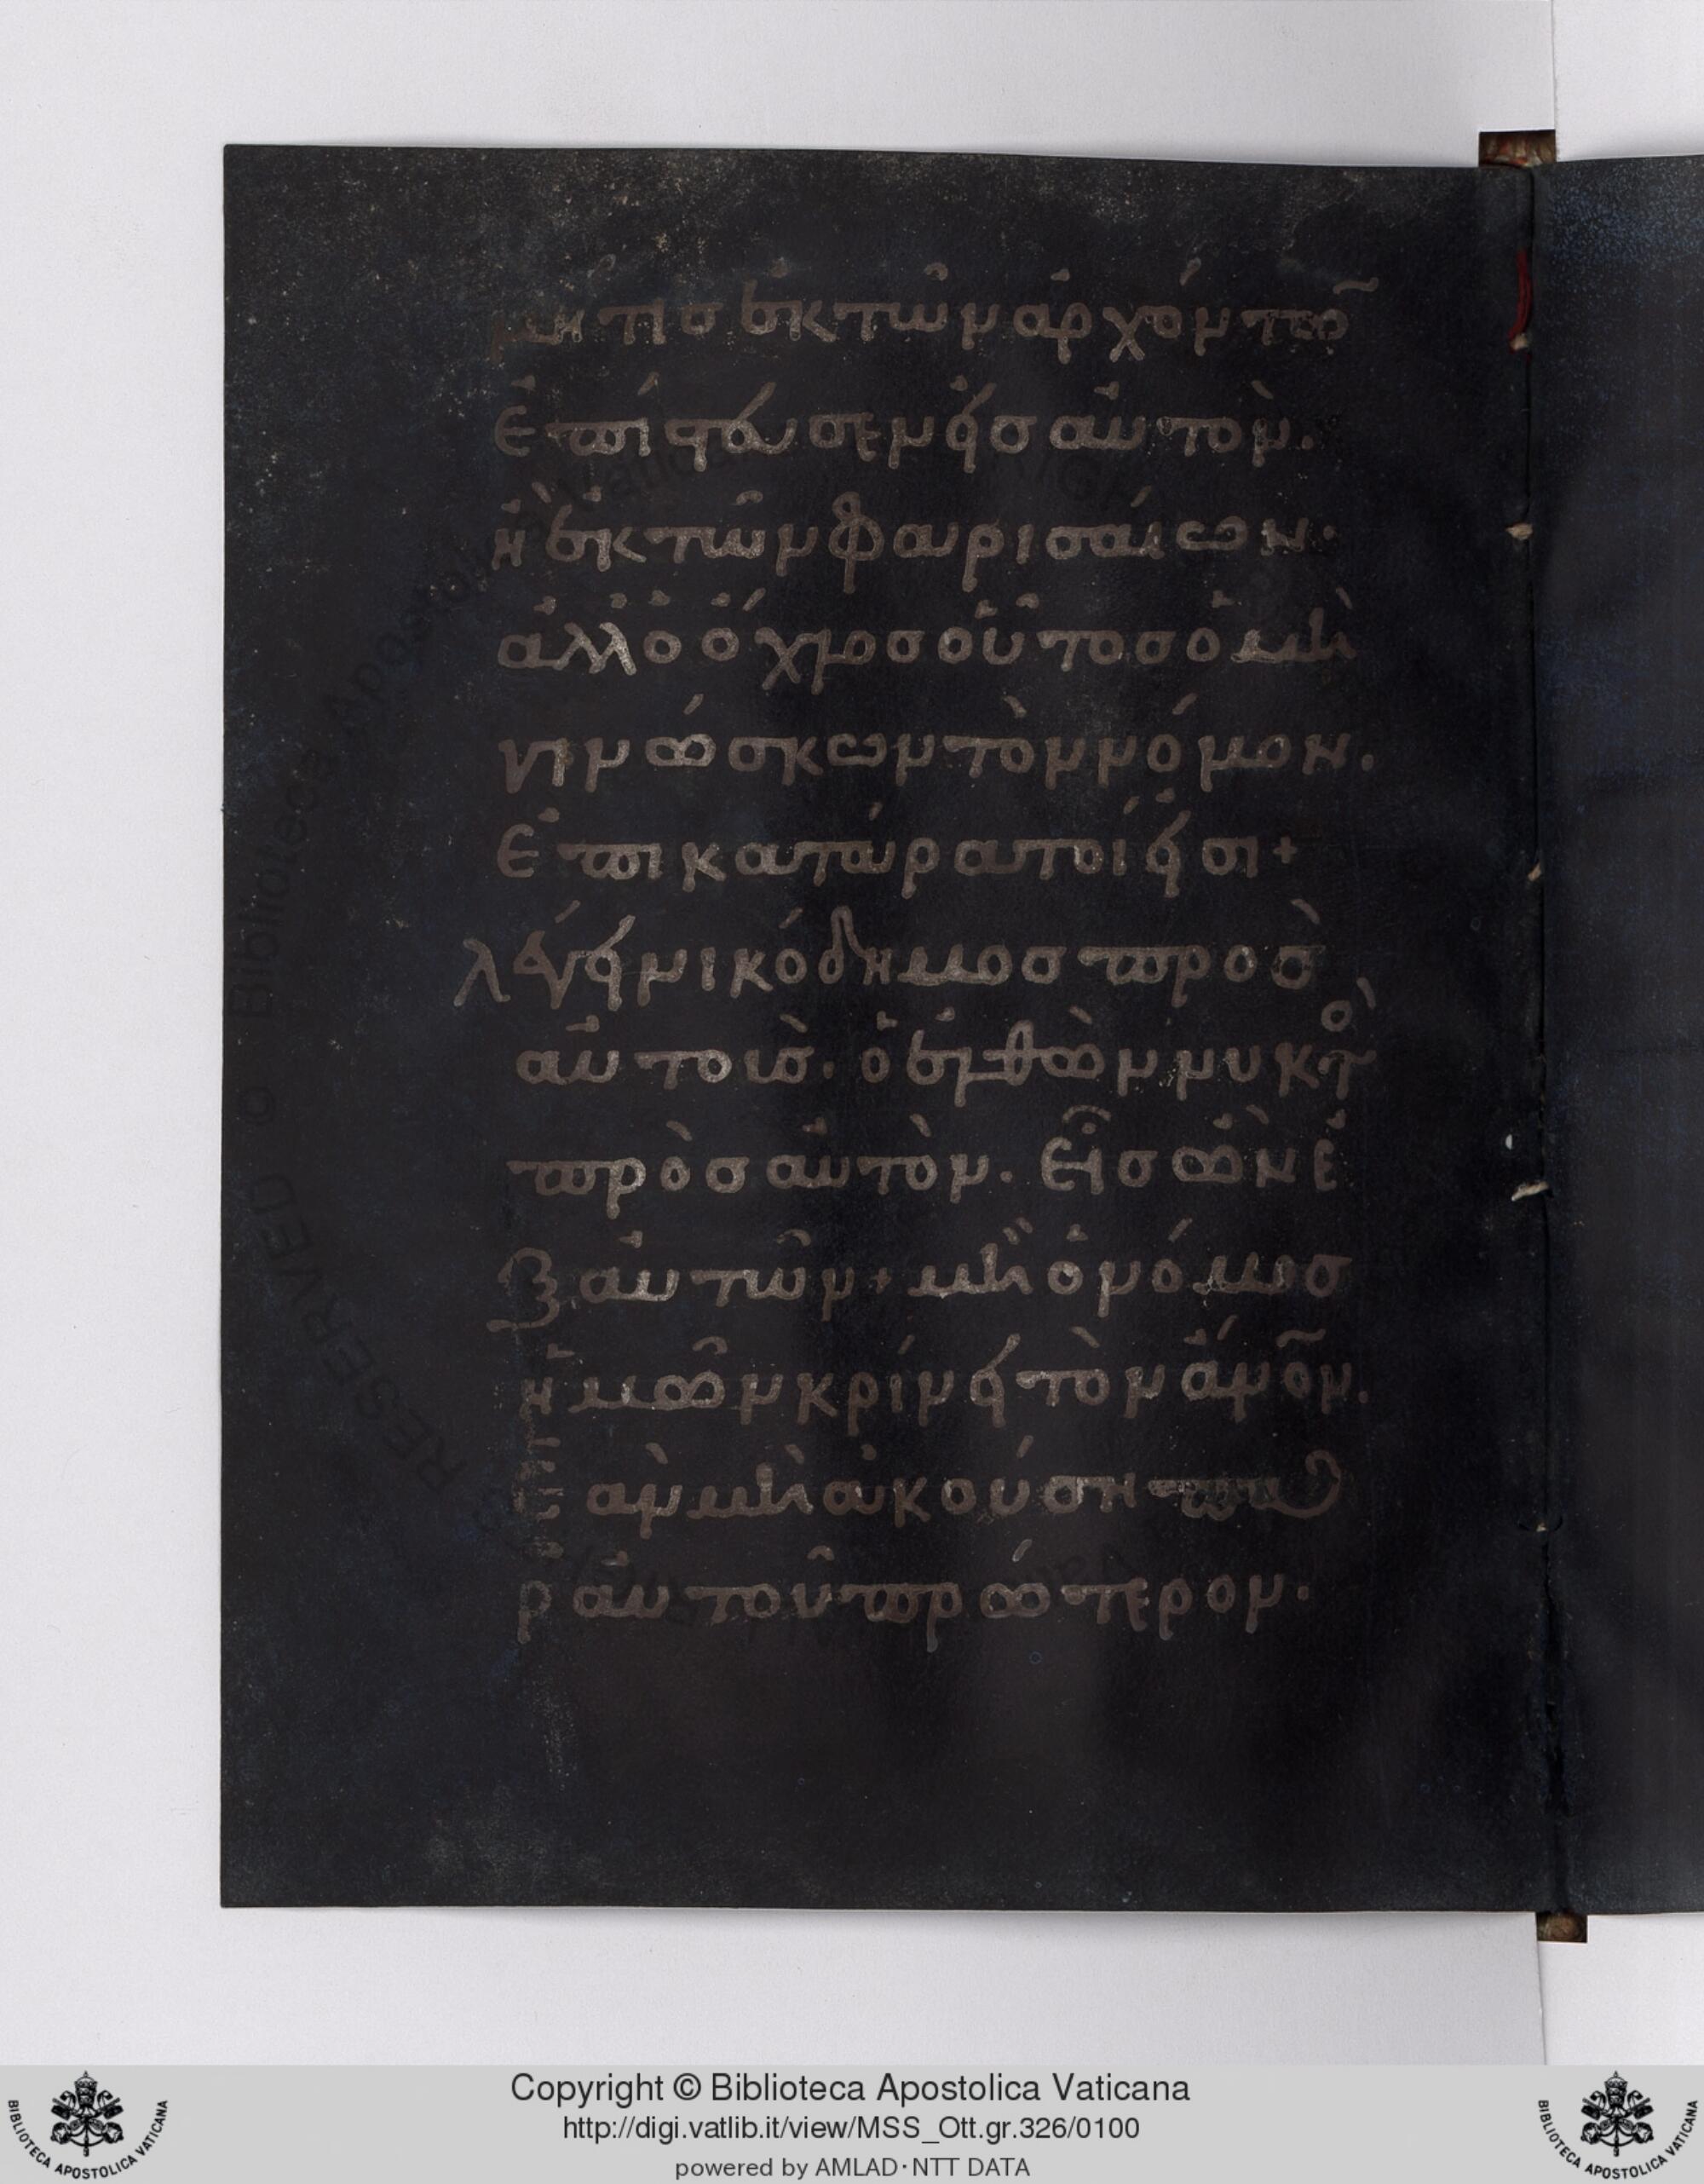 μή τισ ἐκ τῶν ἀρχόντῶ
ἐπίστευσεν εἰσ αὐτὸν.
ἢ ἐκ τῶν φαρισαίων·
ἀλλ ὁ ὄχλοσ οὗτοσ ὁ μὴ
γινώσκων τὸν νόμον.
ἐπικατάρατοί εἰσι+
λέγει νικόδημοσ προσ
αὐτοὺσ. ὁ ἐλθὼν νυκτὸ
πρὸσ αὐτὸν. εἷσ ὢν ἐ
ξ αὐτῶν+ μὴ ὁ νόμοσ
ἡμῶν κρίνει τὸν ἄνο͂ν.
ἐὰν μὴ ἀκούσῃ πα
ρ αὐτοῦ πρώτερον.
Copyright © Biblioteca Apostolica Vaticana
http://digi.vatlib.it/view/MSS_Ott.gr.326/0100
powered by AMLAD·NTT DATA
BIBLIOTECA APOSTOLICA VATICANA
BIBLIOTECA APOSTOLICA VATICANA